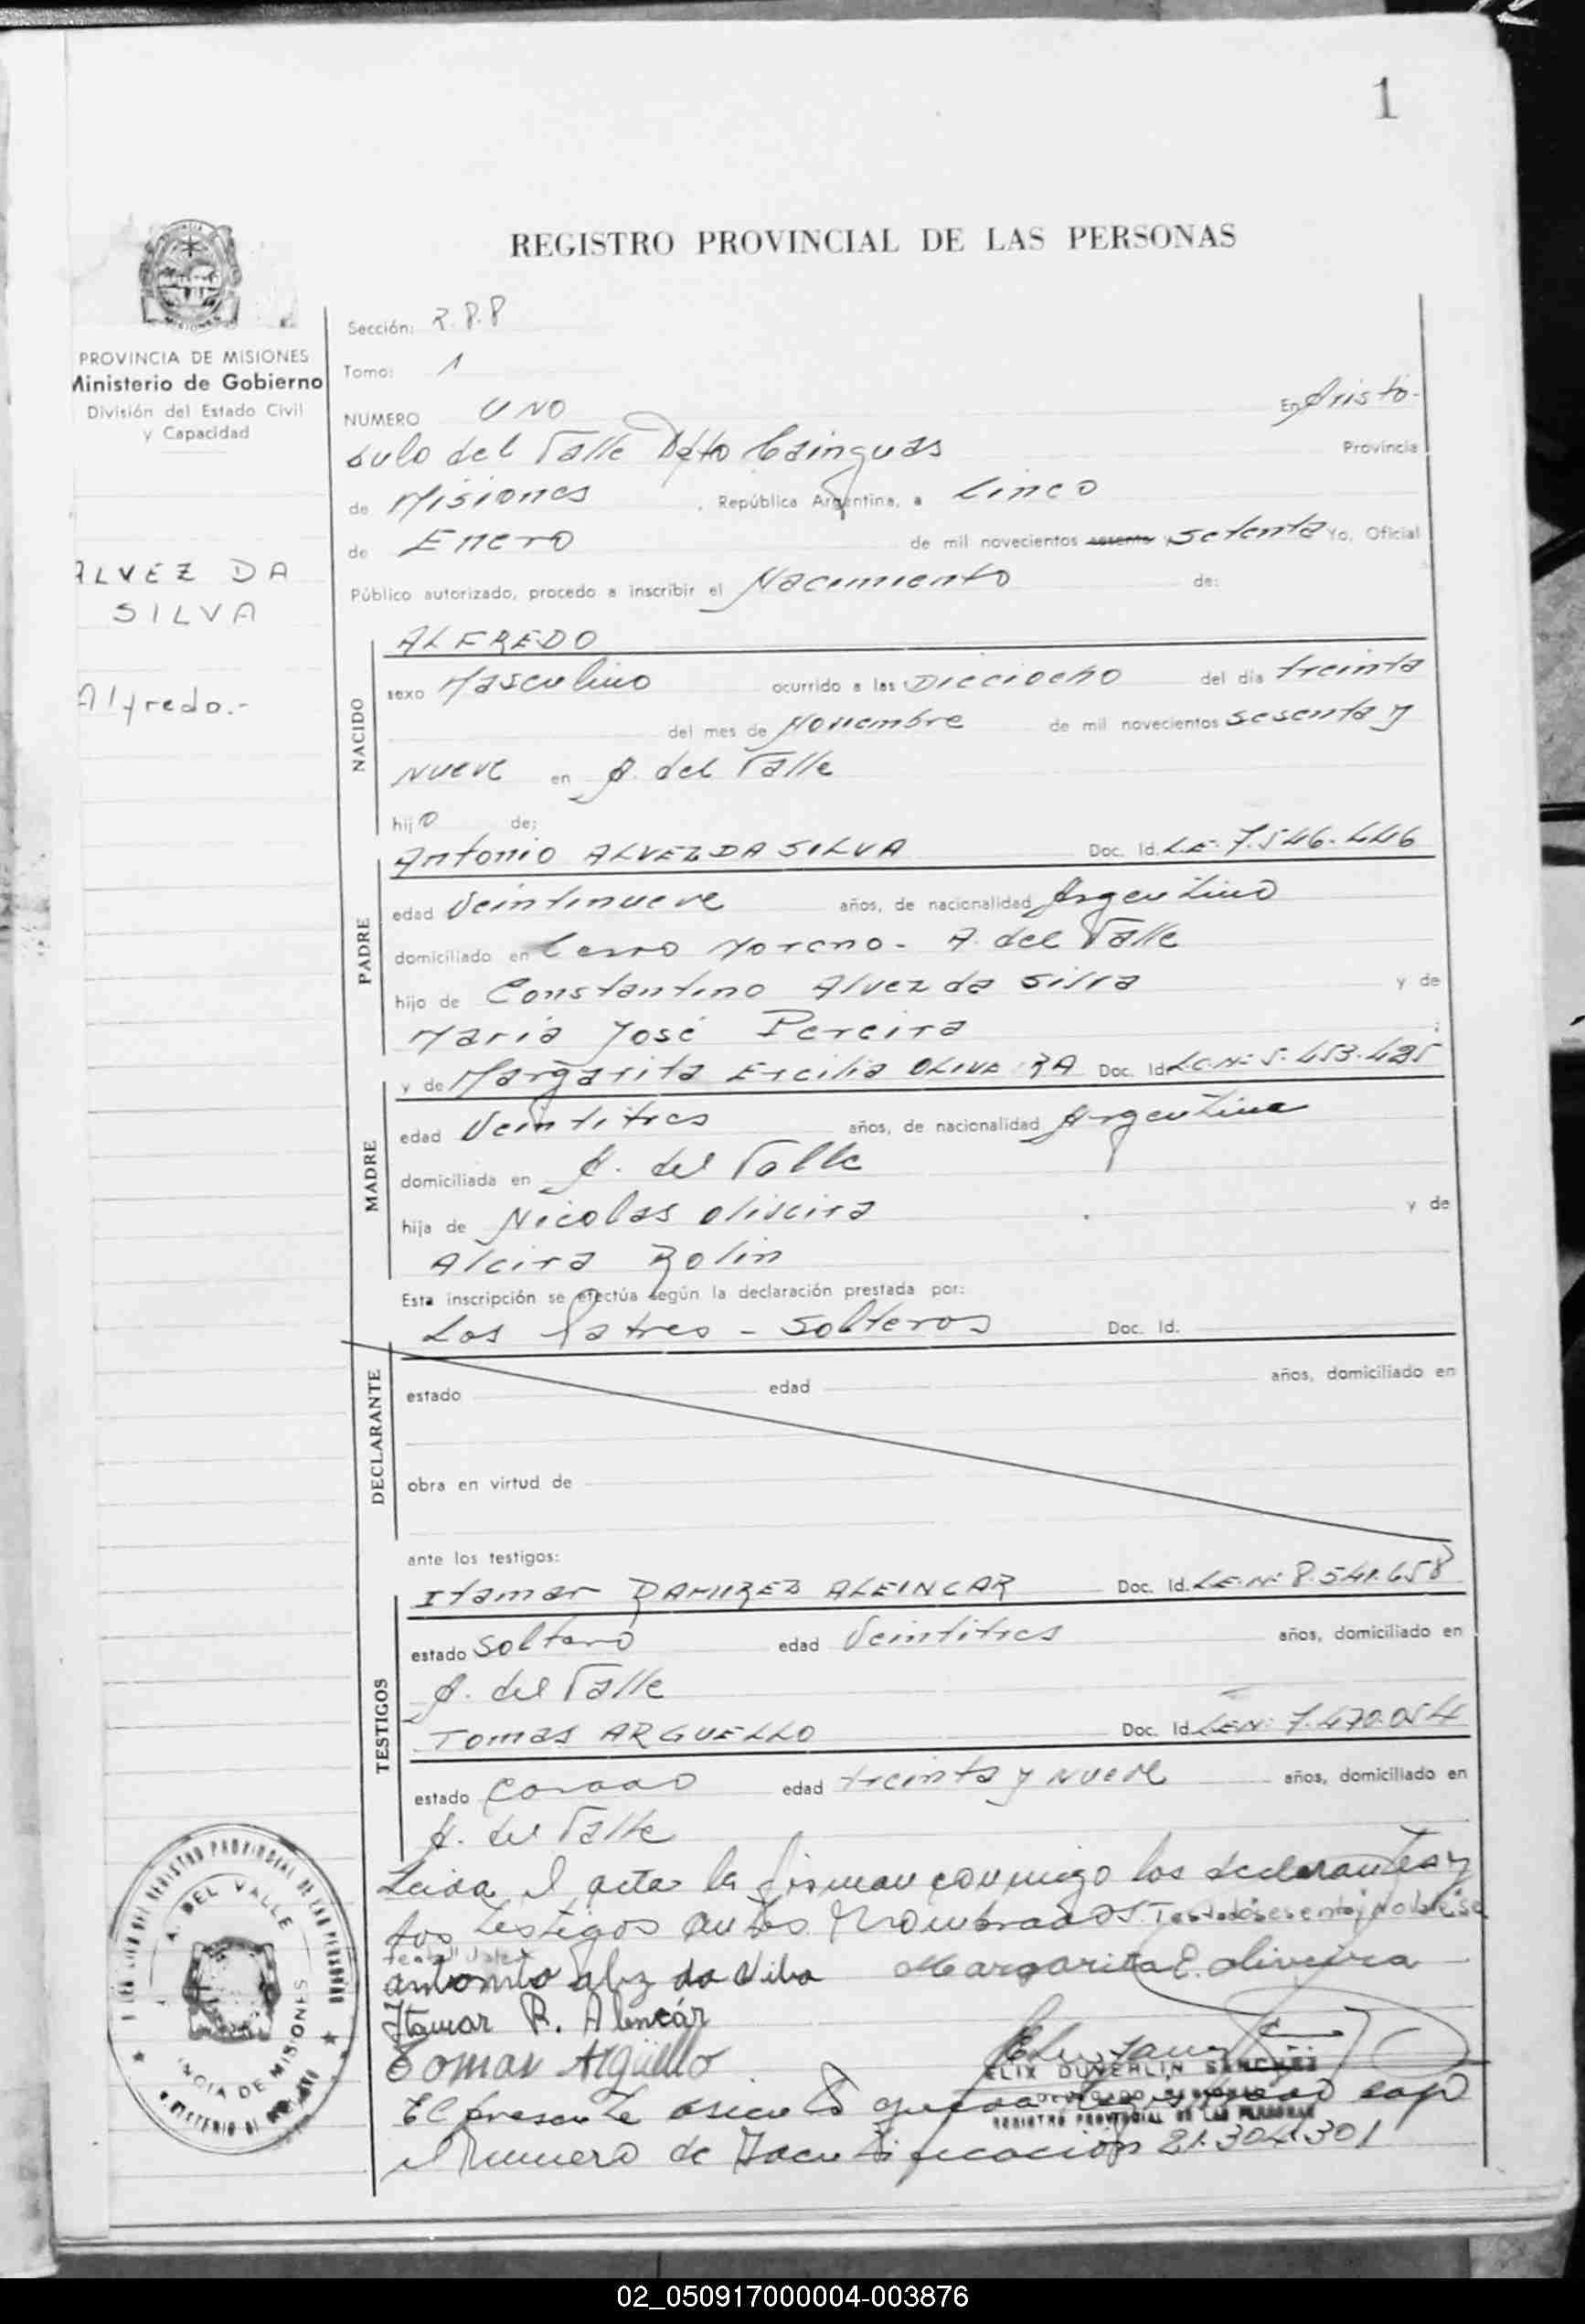 1
REGISTRO PROVINCIAL DE LAS PERSONAS
PROVINCIA DE MISIONES
Ministerio de Gobierno
División del Estado Civil
y Capacidad
ALVEZ DA
SILVA
Alfredo.-
Sección:
Tomo: 1
NUMERO UNO En Aristo-
bulo del Valle Dpto Cainguas Provincia
de Misiones, República Argentina, a Cinco
de Enero de mil novecientos sesenta y setenta Yo, Oficial
Público autorizado, procedo a inscribir el Nacimiento de:
NACIDO
ALFREDO
sexo Masculino ocurrido a las Dieciocho del día treinta
del mes de Noviembre de mil novecientos sesenta y
Nueve en A. del Valle
hijo de:
PADRE
Antonio ALVEZ DA SILVA Doc. Id. L.E. 7.546.446
edad Veintinueve años, de nacionalidad Argentino
domiciliado en Cerro Moreno - A. del Valle
hijo de Constantino Alvez da Silva y de
Maria José Pereira ;
MADRE
y de Margarita Ercilia OLIVEIRA Doc. Id. L.C.Nº 5.453.425
edad Veintitres años, de nacionalidad Argentina
domiciliada en A. del Valle
hija de Nicolas Oliveira y de
Alcira Rolin
Esta inscripción se efectúa según la declaración prestada por:
Los Patres - Solteros Doc. Id.
DECLARANTE
estado edad años, domiciliado en
obra en virtud de
ante los testigos:
TESTIGOS
Itamar RAMIREZ ALEINCAR Doc. Id. L.E.Nº 8.541.658
estado Soltero edad Veintitres años, domiciliado en
A. del Valle
TOMAS ARGUELLO Doc. Id. L.E.N: 7.470.054
estado Casado edad treinta y Nueve años, domiciliado en
A. del Valle
Leida el acta la firman conmigo los declarantes y
los testigos antes Nombrados. Testado: sesenta
antonio alvz da silva Margarita E. Oliveira
Itamar R. Alencár
Tomas Argüello
ELIX DUVERLIN SANCHEZ
DELEGADO
REGISTRO PROVINCIAL DE LAS PERSONAS
El presente asiento queda registrado bajo
el Numero de Identificación 21.304.301
REGISTRO PROVINCIAL DE LAS PERSONAS
A. DEL VALLE
PROVINCIA DE MISIONES
02_050917000004-003876